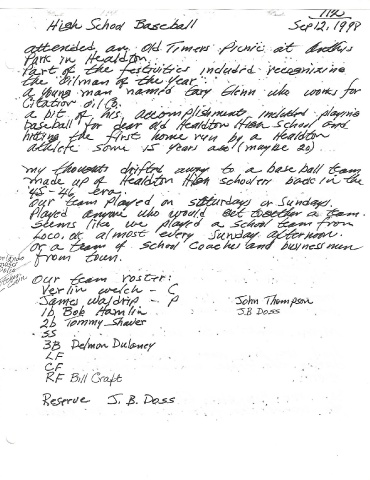 1112
High School Baseball
Sep 12, 1998
attended an Old Timers Picnic at
Park in Healdton.
Part of the festivities included recognizing
the oilman of the year.
a young man named Gary Glenn who works for
Citation Oil Co.
a bit of his accomplishments included playing
baseball for dear old Healdton High School and
hitting the first home run by a Healdton
athlete some 15 years ago (maybe 20).
my thoughts drifted away to a baseball team
made up of Healdton High schoolers back in the
45-46 era.
Our team played on saturdays or Sundays.
Played anyone who would get together a team.
seems like we played a school team from
Loco, ok almost every Sunday afternoon.
or a team of school Coaches and businessmen
from town.
Our team roster:
Verlin Welch - C
James Waldrip - P
John Thompson
1b Bob Hamlin
J.B Doss
2b Tommy Shaver
SS
3B Delmon Dulaney
LF
CF
RF Bill Craft
Reserve J. B. Doss